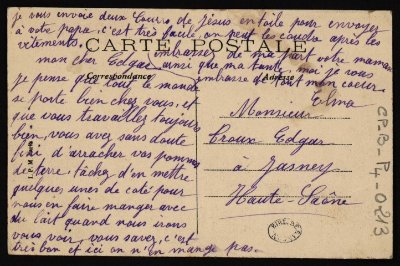 je vous envoie deux Cœurs de Jésus en toile pour envoyer
à votre papa. c'est très facile, on peut les coudre après les
vêtements.
CARTE POSTALE
embrasser de ma part votre maman
mon cher Edgar ainsi que ma tante, moi je vous
Correspondance
Adresse
embrasse de tout mon cœur.
Elma
je pense que tout le monde
se porte bien chez vous, et
que vous travaillez toujours
bien, vous avez sans doute
fini d'arracher vos pommes
de terre, tâchez d'en mettre
quelques unes de coté pour
nous en faire manger avec
du lait quand nous irons
vous voir, vous savez, c'est
très bon et ici on n'en mange pas.
Monsieur
Croux Edgar
à Jasney
Haute-Saône
CPB-P4-0213